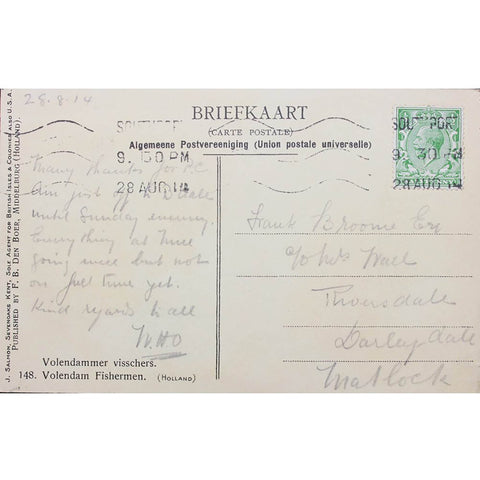 28.8.14
BRIEFKAART
(CARTE POSTALE)
Algemeene Postvereeniging (Union postale universelle)
SOUTHPORT
9. 30 PM
28 AUG 14
SOUTHPORT
9. 30 PM
28 AUG 14
Many thanks for P.C
Am just off to D'dale
until Sunday evening.
Everything at
going nice but not
on full time yet.
Kind regards to all
Frank Broome Esq
Riversdale
Darley dale
Matlock
Volendammer visschers.
148. Volendam Fishermen. (HOLLAND)
J. SALMON, SEVENOAKS KENT, SOLE AGENT FOR BRITISH ISLES & COLONIES ALSO U.S.A.
PUBLISHED BY F. B. DEN BOER, MIDDELBURG (HOLLAND).